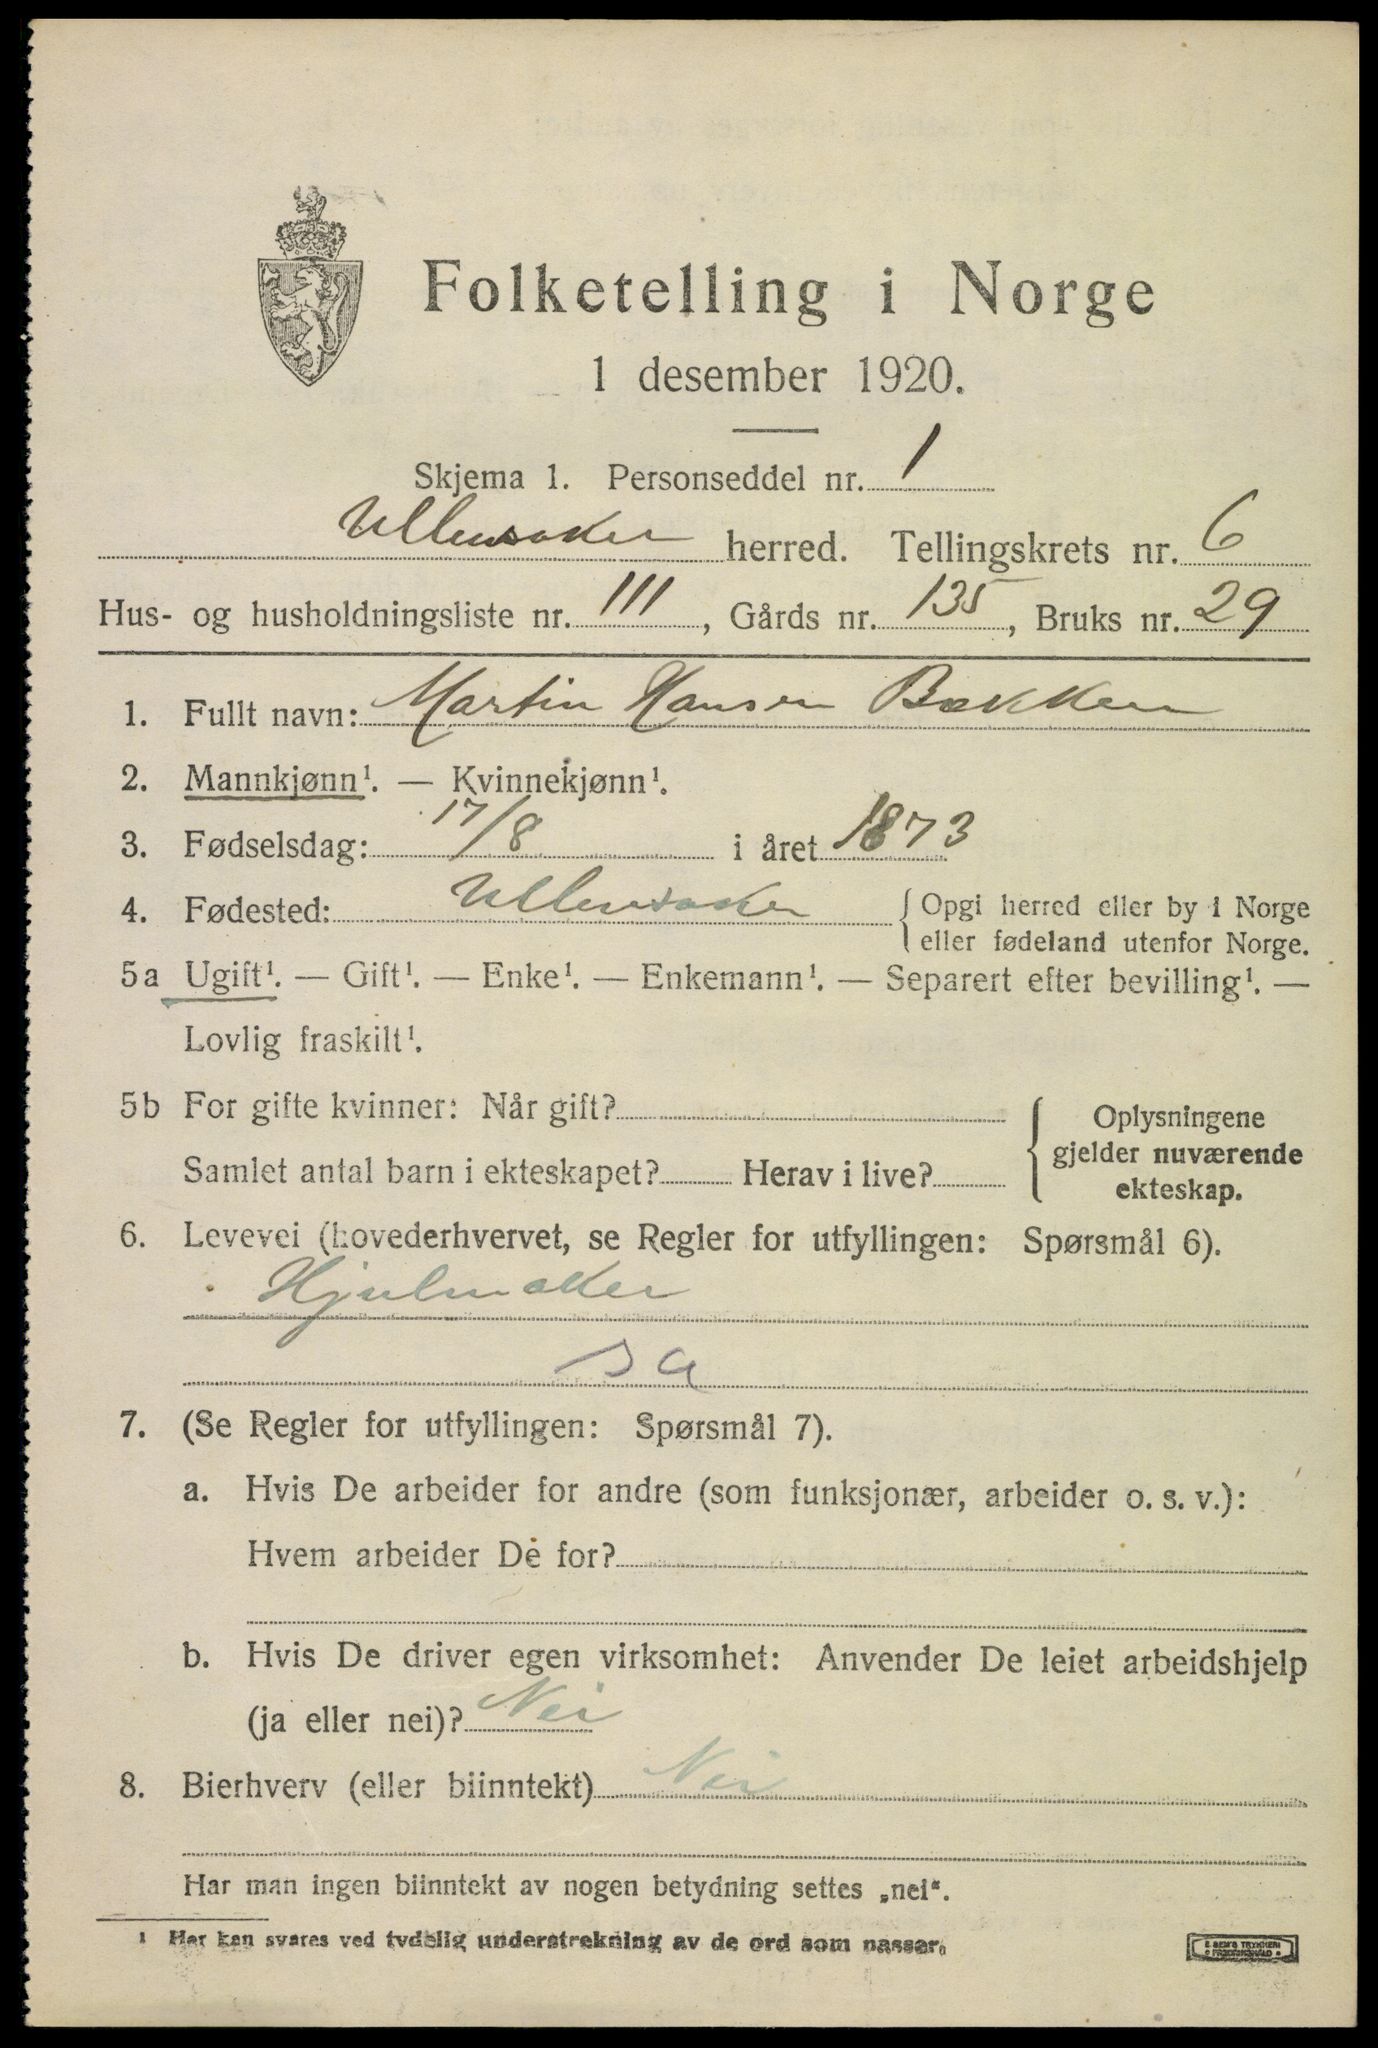 Folketelling i Norge
1 desember 1920.
Skjema 1. Personseddel nr. 1
Ullensaker herred. Tellingskrets nr. 6
Hus- og husholdningsliste nr. 111, Gårds nr. 135, Bruks nr. 29
1. Fullt navn: Martin Hansen Bakken
2. Mannkjønn¹. — Kvinnekjønn¹.
3. Fødselsdag: 17/8 i året 1873
4. Fødested: Ullensaker { Opgi herred eller by i Norge
eller fødeland utenfor Norge.
5a Ugift¹. — Gift¹. — Enke¹. — Enkemann¹. — Separert efter bevilling¹. —
Lovlig fraskilt¹.
5b For gifte kvinner: Når gift?
Samlet antal barn i ekteskapet? Herav i live?
Oplysningene
gjelder nuværende
ekteskap.
6. Levevei (hovederhvervet, se Regler for utfyllingen: Spørsmål 6).
Hjulmaker
sa
7. (Se Regler for utfyllingen: Spørsmål 7).
a. Hvis De arbeider for andre (som funksjonær, arbeider o. s. v.):
Hvem arbeider De for?
b. Hvis De driver egen virksomhet: Anvender De leiet arbeidshjelp
(ja eller nei)? Nei
8. Bierhverv (eller biinntekt) Nei
Har man ingen biinntekt av nogen betydning settes „nei“.
1 Her kan svares ved tydelig understrekning av de ord som passer.
E. SEM'S TRYKKERI
FREDRIKSHALD